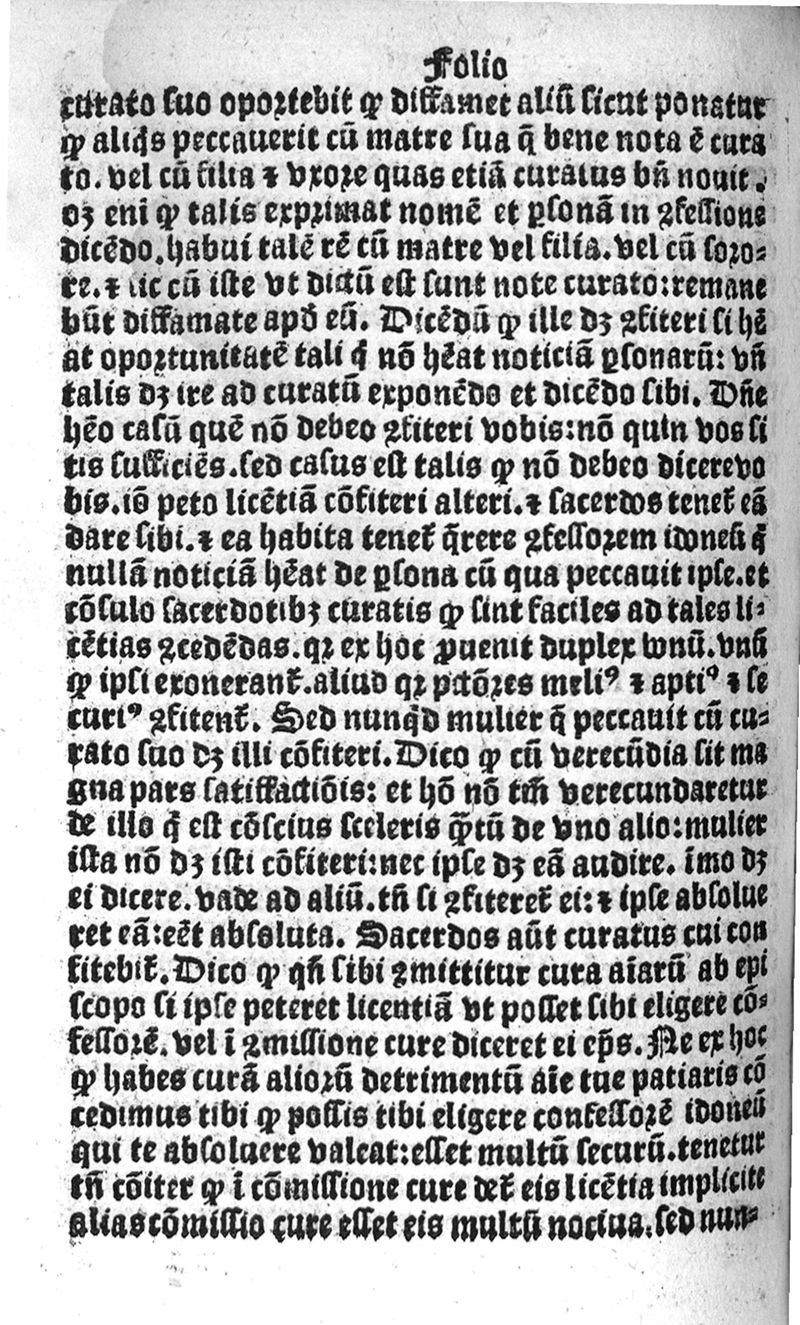 Folio
curato suo oportebit ꝙ diffamet aliũ sicut ponatur
ꝙ aliq̃s peccauerit cũ matre sua q̃ bene nota ẽ cura
to. vel cũ filia ⁊ vxore quas etiã curatus bñ nouit.
oꝫ eni ꝙ talis exprimat nomẽ et ꝑsonã in ꝯfessione
dicẽdo. habui talẽ rẽ cũ matre vel filia. vel cũ soro⸗
re. ⁊ sic cũ iste vt dictũ est sunt note curato: remane
bũt diffamate apđ eũ. Dicẽdũ ꝙ ille dꝫ ꝯfiteri si hẽ
at oportunitatẽ tali q̇ nõ hẽat noticiã ꝑsonarũ: vñ
talis dꝫ ire ad curatũ exponẽdo et dicẽdo sibi. Dñe
hẽo casũ quẽ nõ debeo ꝯfiteri vobis: nõ quin vos si
tis sufficiẽs. sed casus est talis ꝙ nõ debeo dicere vo
bis. iõ peto licẽtiã cõfiteri alteri. ⁊ sacerdos tenet᷑ eã
dare sibi. ⁊ ea habita tenet᷑ q̃rere ꝯfessorem idoneũ q̇
nullã noticiã hẽat de ꝑsona cũ qua peccauit ipse. et
cõsulo sacerdotibꝫ curatis ꝙ sint faciles ad tales li⸗
cẽtias ꝯcedẽdas. qꝛ ex hoc ꝓuenit duplex bonũ. vnũ
ꝙ ipsi exonerant᷑. aliud qꝛ pctõres meliꝰ ⁊ aptiꝰ ⁊ se
curiꝰ ꝯfitent᷑. Sed nunqͥd mulier q̃ peccauit cũ cu⸗
rato suo dꝫ illi cõfiteri. Dico ꝙ cũ verecũdia sit ma
gna pars satisfactiõis: et hõ nõ tm̃ verecundaretur
de illo q̇ est cõscius sceleris q̃tũ de vno alio: mulier
ista nõ dꝫ isti cõfiteri: nec ipse dꝫ eã audire. ĩmo dꝫ
ei dicere. vade ad aliũ. tñ si ꝯfiteret᷑ ei: ⁊ ipse absolue
ret eã: eẽt absoluta. Sacerdos aũt curatus cui con
fitebit᷑. Dico ꝙ qñ sibi ꝯmittitur cura aĩarũ ab epi
scopo si ipse peteret licentiã vt posset sibi eligere cõ⸗
fessorẽ. vel ĩ ꝯmissione cure diceret ei ep̃s. Ne ex hoc
ꝙ habes curã aliorũ detrimentũ aĩe tue patiaris cõ
cedimus tibi ꝙ possis tibi eligere confessorẽ idoneũ
qui te absoluere valeat: esset multũ securũ. tenetur
tñ cõiter ꝙ ĩ cõmissione cure det᷑ eis licẽtia implicite
alias cõmissio cure esset eis multũ nociua. sed nun⸗